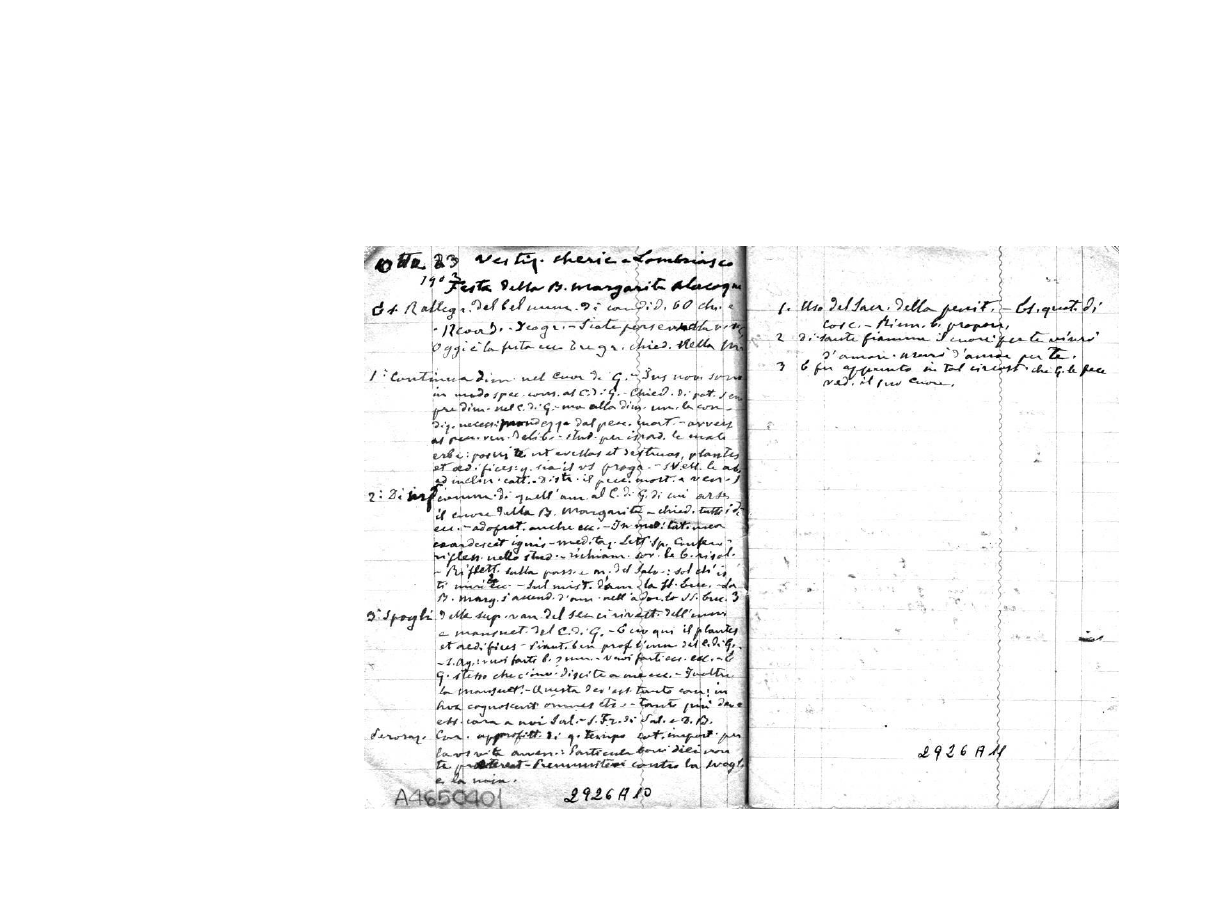 Otte 23 Vestiz. cheric. a Lombriasco
1903 Festa della B. Margarita Alacoqu
Es. Rallegr. del bel num. di candid. 60 che
Oggi è la festa ecc. chied. della
1° Continua dim. nel Cuor di G. - Sus novi sono
in modo spec. cons. al C. di G. - Chied. di pot. sem
pre dim. nel C. di G. - ma alla dim. un. la con-
diz. necess. mondezza dal pecc. mort. - avvers
al pecc. ven. delib. - stud. per isrod. le male
erbe: posui te ut evellas et destruas, plantes
et aedifices: q. sia il vs progr. - Svell. le ab.
ed inclin. catt. - Distr. il pecc. mort. e ven.
2° Di inf fiamma di quell'am. al C. di G. di cui arse
il cuore della B. Margarita - chied. tutti i dì
ecc. - adoprat. anche ecc. - In meditat. mea
exardescet ignis - meditaz. Lett. sp. Confer.
rifless. nello stud. - richiam. sov. le b. risol.
- Rifless. sulla pass. e m. del Salv.: sol ch'is
ti miri ecc. 2 - Sul mist. d'am. la SS. Euc. - La
B. Marg. s'accend. d'am. nell'ador. lo SS. Euc. 3
3° Spogli della sup. van. del sec. ci rivest. dell'umi
e mansuet. del C. di G. - E cir qui il plantes
et aedifices - Piant. ben prof. l'um. del C. di G.
- S. Ag.: vuoi farti b. - vuoi farti ecc. ecc. - E
G. stesso che c'inv. discite a me ecc. - Inoltre
la mansuet. - Questa dev'ess. tanto con: in
hoc cognoscent omnes etc. - tanto più deve
ess. cara a noi Sal. - S. Fr. di Sal. e D. B.
Fervoraz. Cor. approfitt. di q. tempo import. per
la vs vita avven.: Particula boni diei non
te praetereat - Premunitevi contro la svogl.
e la noia.
A4650401 2926 A10
1. Uso del Sacr. della penit. - Es. quot. di
cosc. - Rinn. b. propon.
2 Di sante fiamme i cuori per te
d'amor. d'amor per te.
3 E fu appunto in tal circost. che G. le fece
ved. il suo Cuore.
2926 A 11